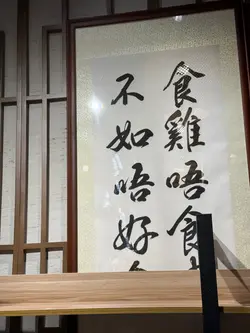 食雞唔食
不如唔好